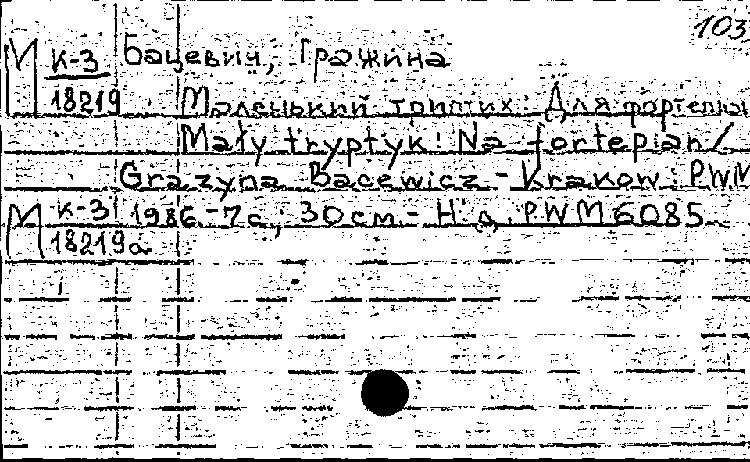 103
М К-3 Бацевич, Гражина
18219 Маленький триптих: Для фортепіан
Mały tryptyk: Na fortepian /
Grażyna Bacewicz – Krakow: PWM
М К-3 1986.-7с.; 30см.- Н.д. PWM 6085
18219а